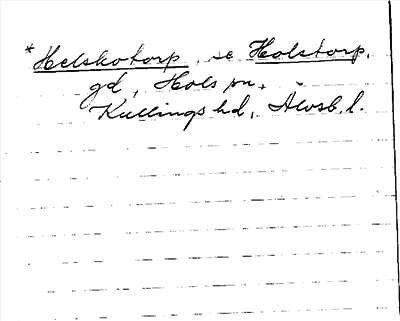 * Helskotorp, se Holstorp,
gd, Hols sn,
Kullings hd, Älvsb. l.